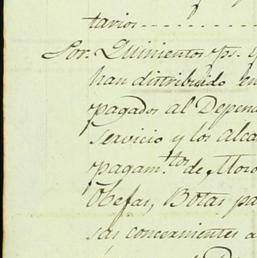 tarios
Por. Quinientos ps.
han distribuido en
pagados al Depen
servicio y los Alca
pagam.tos de Moro
Obejas, Botas pa
sas concernientes a